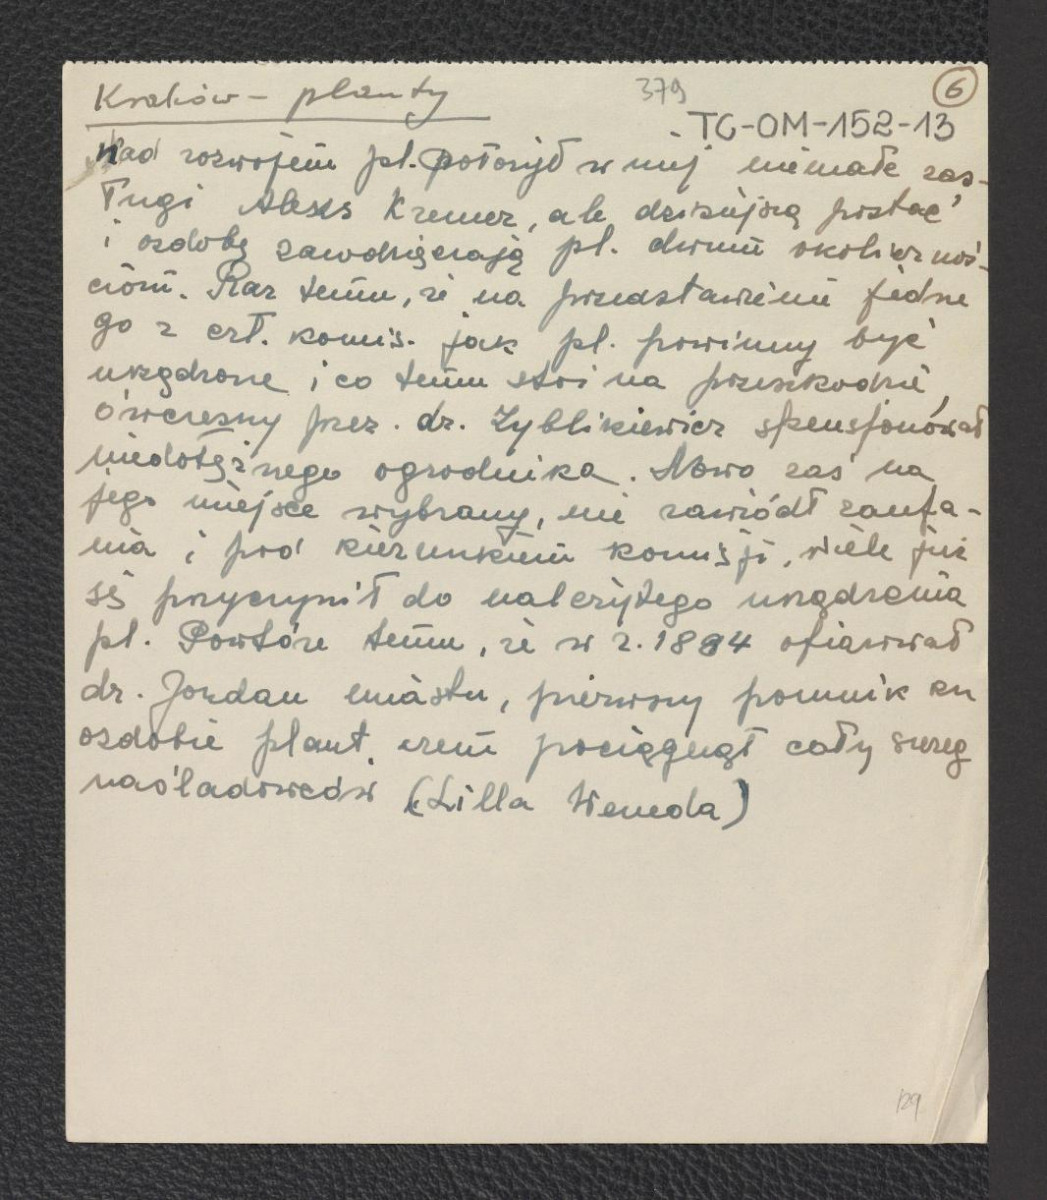 Kraków – planty
379
6
TG-OM-152-13
Nad rozwojem pl. położył w niej niemałe zas-
ługi Aleks Kremer, ale dzisiejszą postać
i ozdobę zawdzięczają pl. dwum okolicznoś-
ciom. Raz temu, że na przedstawienie jedne
go z czł. komis. jak pl. powinny być
urządzone i co temu stoi na przeszkodzie,
ówczesny prez. dr. Zyblikiewicz spensjonował
niedołężnego ogrodnika. Nowo zaś na
jego miejsce wybrany, nie zawiódł zaufa-
nia i pod kierunkiem komisji, wiele już
się przyczynił do należytego urządzenia
pl. Powtóre temu, że w r. 1884 ofiarował
dr. Jordan miastu, pierwszy pomnik ku
ozdobie plant, czem pociągnął cały szereg
naśladowców (Lilla Weneda)
129